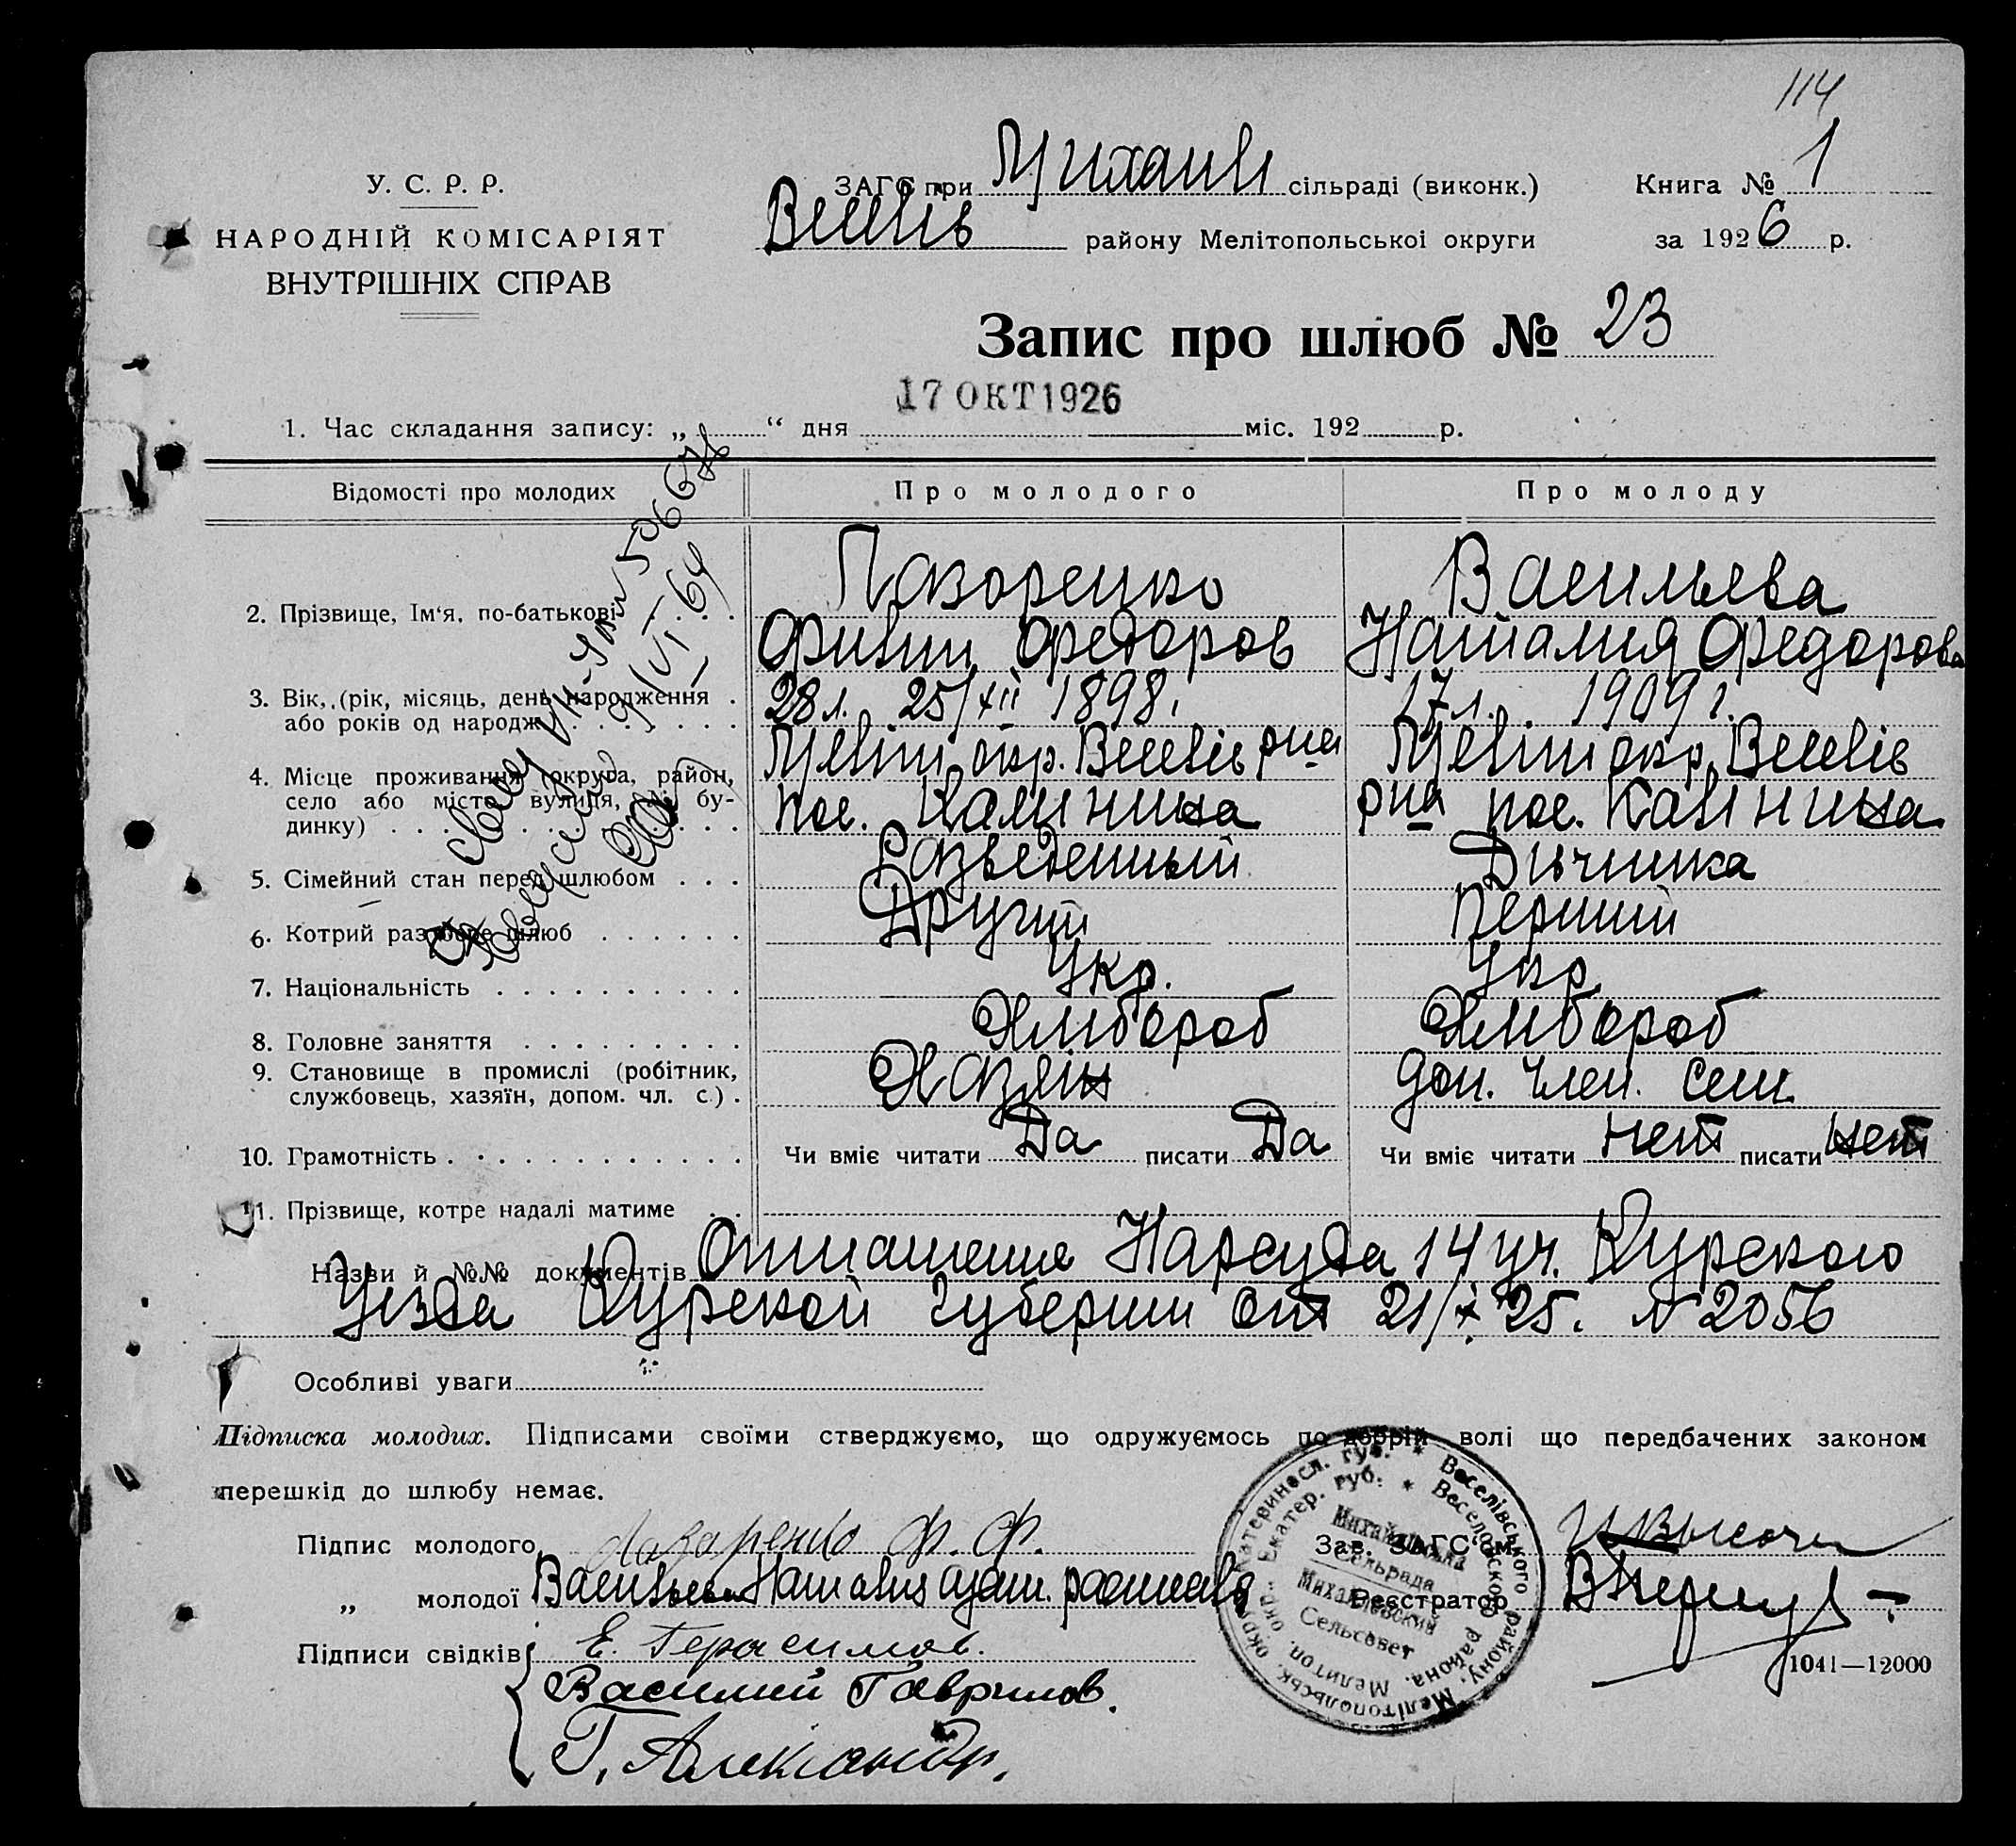 114
У. С. Р. Р.
НАРОДНІЙ КОМІСАРІЯТ
ВНУТРІШНІХ СПРАВ
ЗАГС при Михайл сільраді (виконк.) Книга № 1
Веселів району Мелітопольської округи за 1926 р.
Запис про шлюб № 23
17 ОКТ 1926
1. Час складання запису: „ “ дня міс. 192 р.
Відомості про молодих Про молодого Про молоду
2. Прізвище, Ім‘я, по-батькові Лазоренко Васильева
Филип Федоров Наталия Федорова
3. Вік, (рік, місяць, день народження 28 л. 25/XII 1898. 17 л. 1909 г.
або років од народж.)
4. Місце проживання (округа, район, Меліт окр. Веселів рна Меліт окр. Веселів
село або місто, вулиця, № бу- пос. Калинина рна пос. Калінина
динку)
5. Сімейний стан перед шлюбом Разведенный Дівчинка
6. Котрий раз бере шлюб Другий Перший
7. Національність Укр. Укр
8. Головне заняття Хлибороб Хлибороб
9. Становище в промислі (робітник, Хазяін доп. член. сем.
службовець, хазяїн, допом. чл. с.)
10. Грамотність Чи вміє читати Да писати Да Чи вміє читати нет писати нет
11. Прізвище, котре надалі матиме
Назви й №№ документів Отношение Нарсуда 14 уч. Курского
Уезда Курской губернии от 21/X 25. № 2056
Особливі уваги
Підписка молодих. Підписами своїми стверджуємо, що одружуємось по добрій волі що передбачених законом
перешкід до шлюбу немає.
Підпис молодого Лазаренко Ф. Ф. Зав. ЗАГС‘ом
„ молодої Васильева Наталия Реєстратор
Підписи свідків Е. Герасимов.
Василий Гаврилов.
Г. Александр.
1041—12000
Катериносл. губ. * Веселівського району, Мелітопольськ. окр.
Екатер. губ. * Веселовского района, Мелитоп. окр.
Михайлівська
Сельрада
Михайловский
Сельсовет